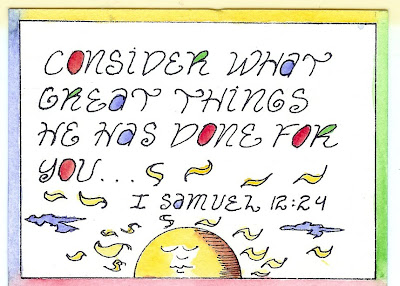 CONSIDER WHAT
GREAT THINGS
HE HAS DONE FOR
YOU...
I SAMUEL 12:24